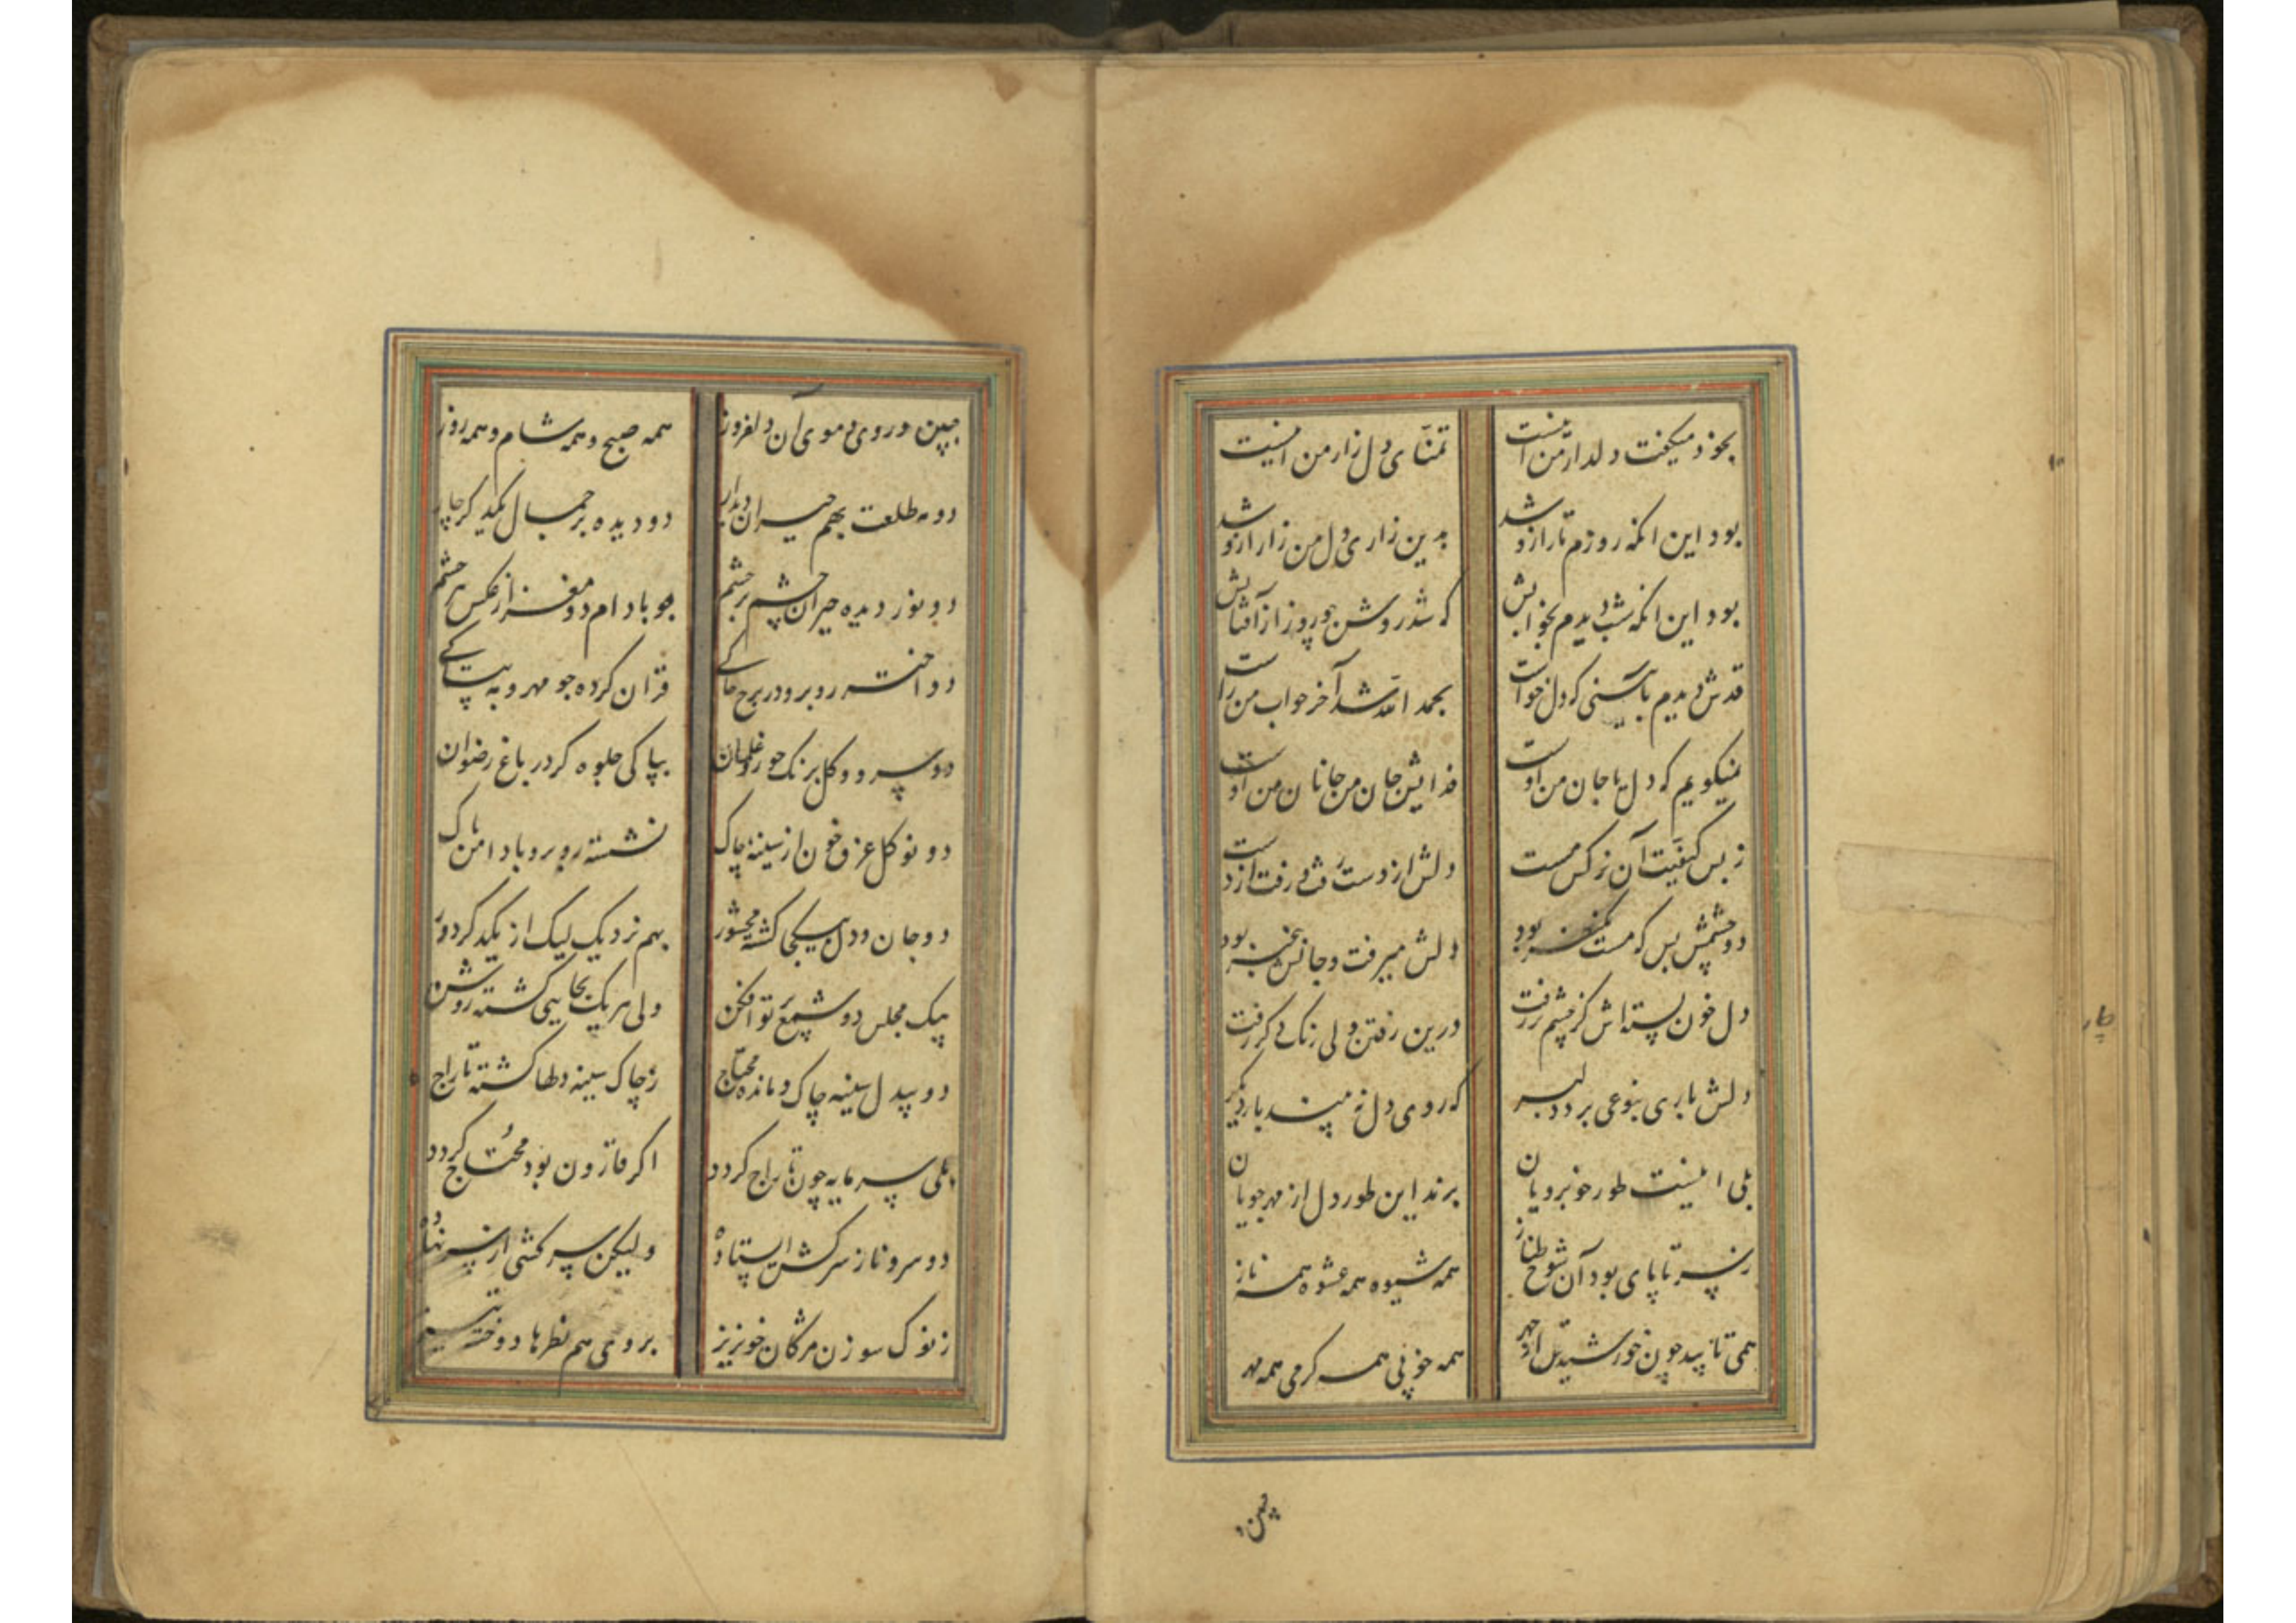 بخود میکفت دلدار من اینست تمنّای دل زار من اینست
بود این انکه روزم تار ازو شد بدین زاری دل من زار ازو شد
بود این انکه شب دیدم بخوابش که شد روشن دو روز از آفتابش
قدش دیدم بآیینی که دل خواست بحمد الله شد آخر خواب من راست
نمیکویم که دل یا جان من اوست فدایش جان من جانان من اوست
ز بس کیفیت آن نرکس مست دلش از دست رفت و رفت از دست
دو چشمش بس که مست بود دلش میرفت و جانش بود
دل خون بسته اش کز چشم تر رفت درین رفتن ولی رنکی دکر رفت
دلش باری بنوعی برد دلبر که روی دل نه بیند بار دیکر
بلی اینست طور خوبرویان برند این طور دل از مهرجویان
ز سر تا پای بود آن شوخ طناز همه شیوه همه عشوه همه ناز
همی تابید چون خورشید از چهر همه خوبی همه کرمی همه مهر
جبین
جبین و روی و موی آن دلفروز همه صبح و همه شام و همه روز
دو مه طلعت بهم حیران دیدار دو دیده بر جمال یکدکر چار
دو نور دیده حیران چشم بر چشم چو بادام دو مغز از عکس بر چشم
دو اختر روبرو در برج خاکی قران کرده چو مهر و مه بپاکی
دو سرو و کل برنک حور و غلمان بپاکی جلوه کر در باغ رضوان
دو نو کل غرق خون از سینه چاک نشسته روبرو با دامن پاک
دو جان و دل بیکجا کشته محشور بهم نزدیک لیک از یکدکر دور
بیک مجلس دو شمع پرتو افکن ولی هر یک بجایی کشته روشن
دو بیدل سینه چاک و مانده محتاج ز چاک سینه دلها کشته تاراج
بلی سرمایه چون تاراج کردد اکر قارون بود محتاج کردد
دو سرو ناز سرکش ایستاده ولیکن سرکشی از سر نهاده
ز نوک سوزن مژکان خونریز بروی هم نظرها دوخته تیز